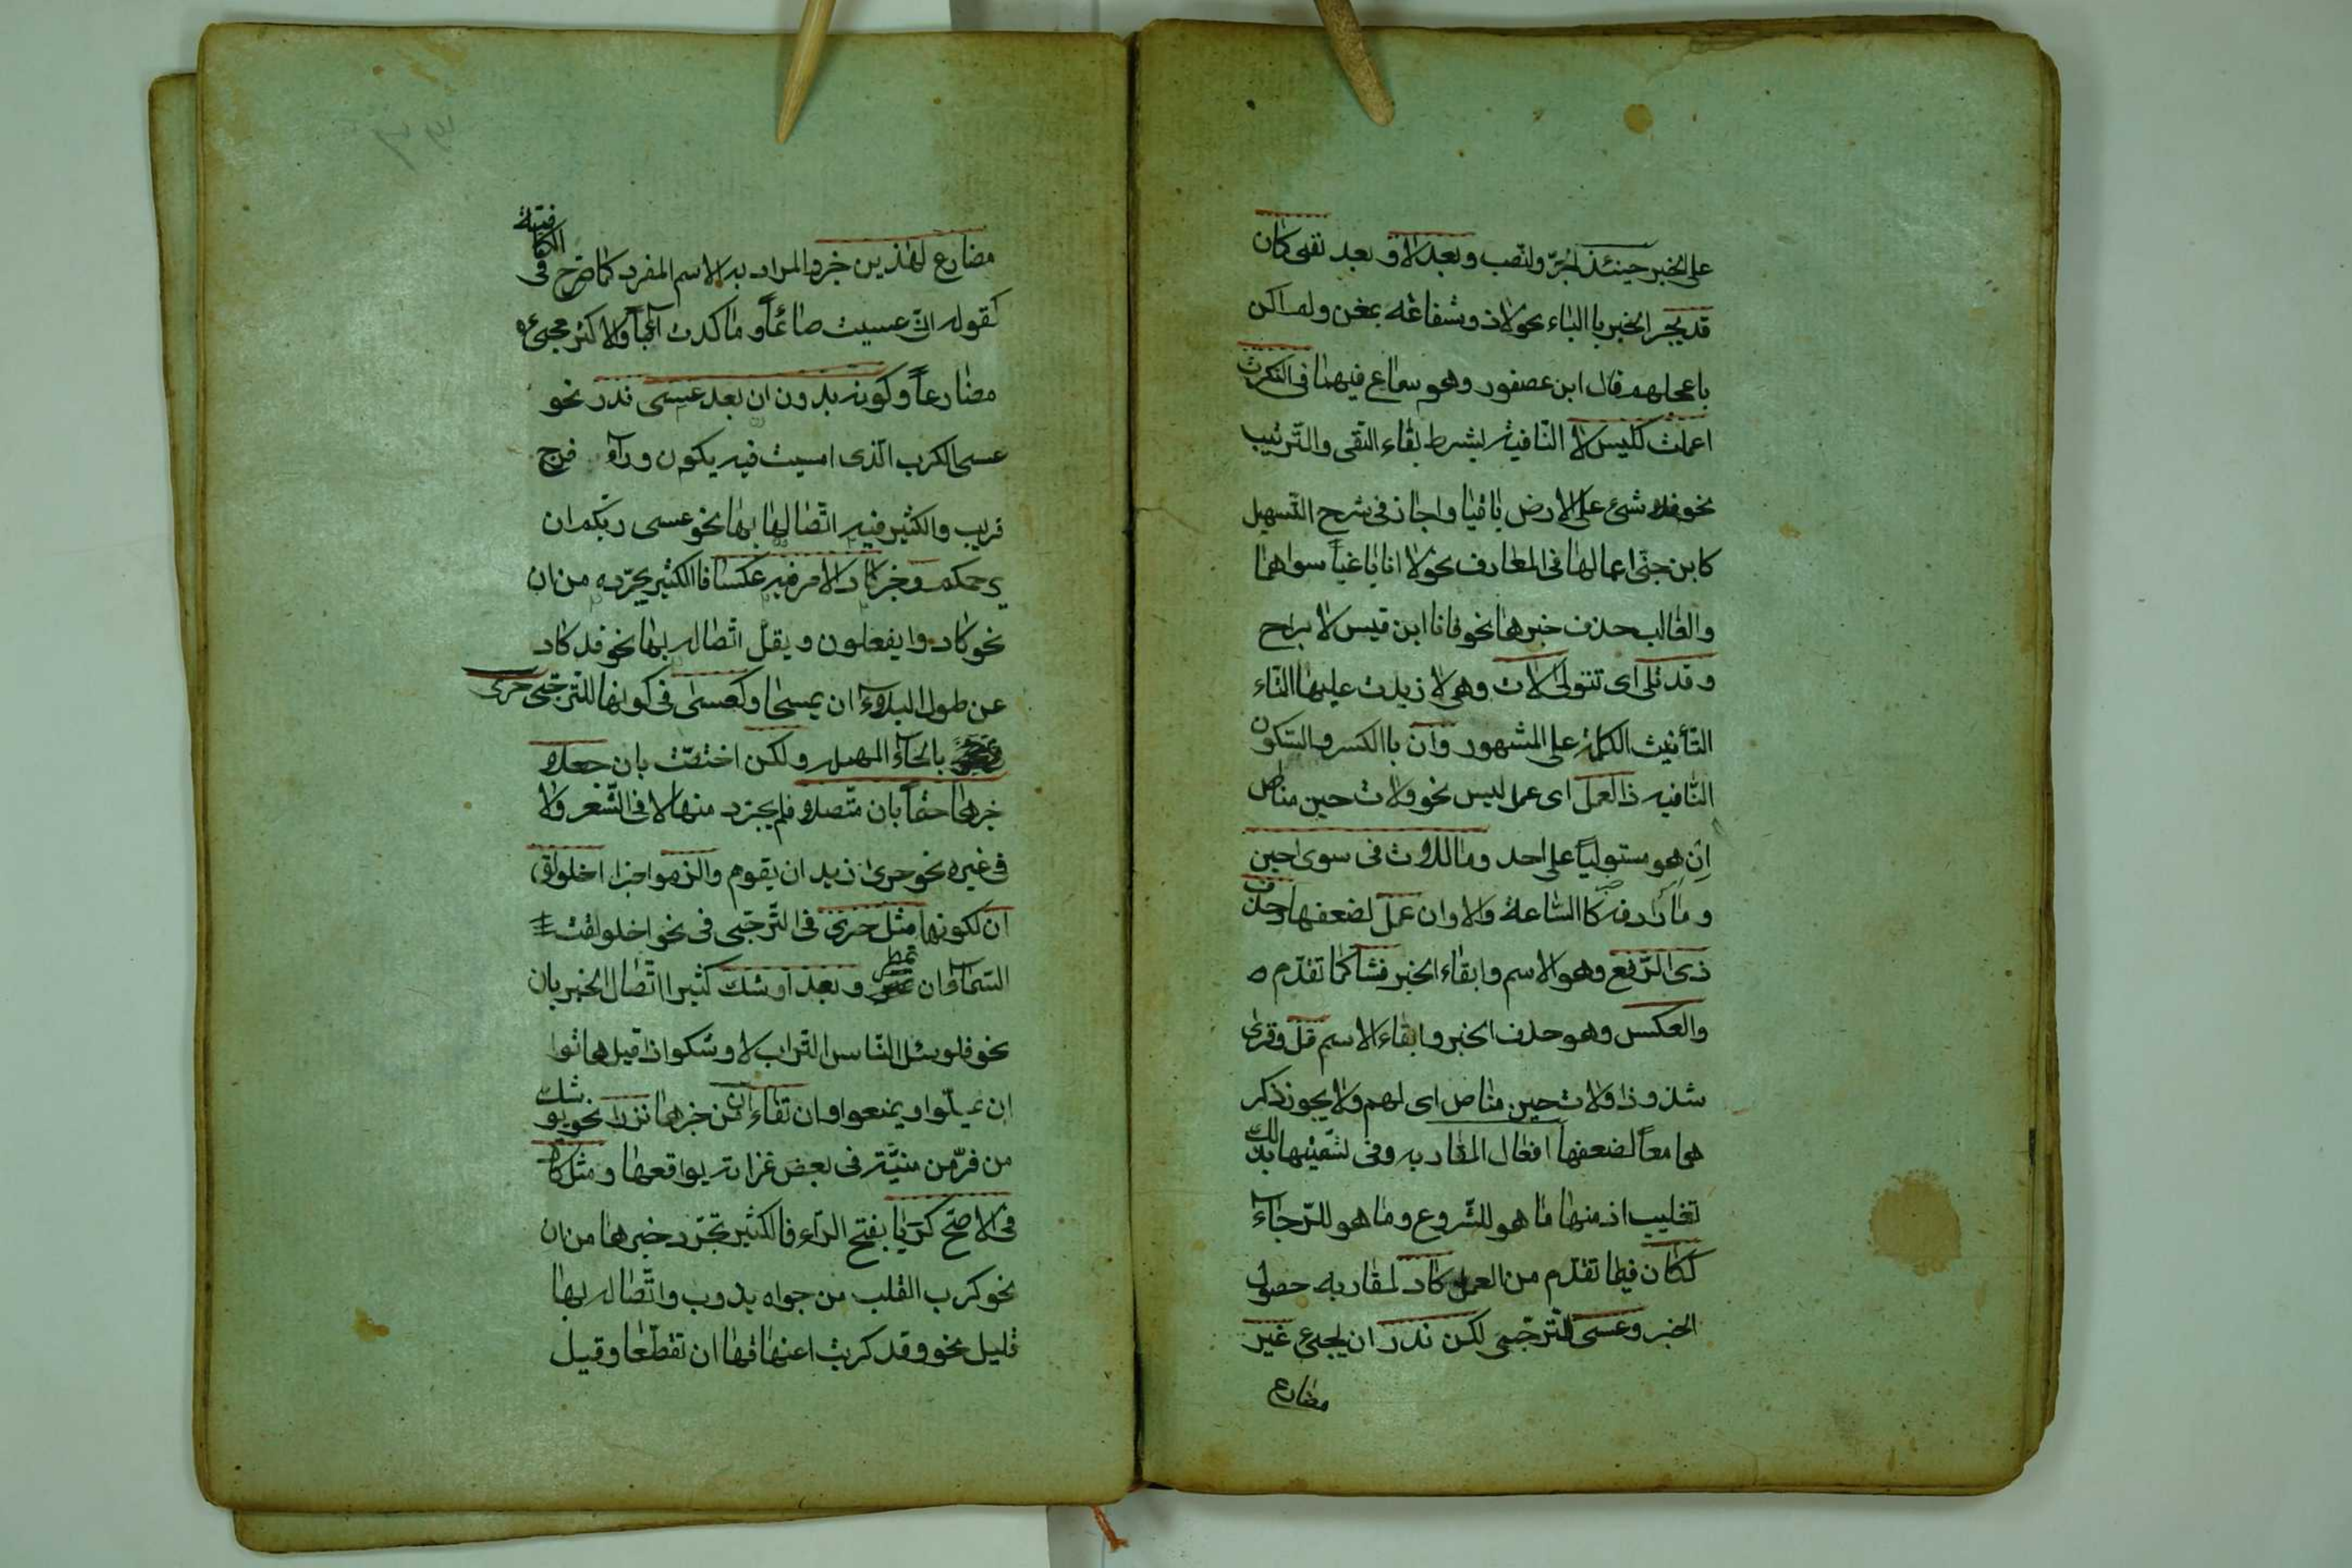 على الخبر حينئذ الجرّ والنّصب وبعد لا و بعد نفى كان
قد يجر الخبر باالباء نحو لا ذو شفاعة بمغن ولم اكن
باعجلهم قال ابن عصفور وهو سماع فيهما فى النّكرات
اعملت كليس لا النّافية بشرط بقاء النّفى والتّرتيب
نحو فلا شئ على الارض باقيا واجاز فى شرح التّسهيل
كابن جنّى اعمالها فى المعارف نحو لا انا باغياً سواها
والغالب حذف خبرها نحو فانا ابن قيس لا براح
و قد تلى اى تتولى لات وهى لا زيدت عليها التّاء
التّأنيث الكلمة على المشهور وان باالكسر والسّكون
النّافيه ذا العمل اى عمل ليس نحو ولات حين مناص
اِن هو مستولياً على احد وما للات فى سوى حين
و ما رادفه كاالسّاعة والاوان عمل لضعفها وحذف
ذى الرّفع وهو الاسم وابقاء الخبر فشا كما تقدّم
والعكس وهو حذف الخبر وابقاء الاسم قلّ وقرئ
شذوذا ولات حين مناص اى لهم ولا يجوز ذكر
هما معاً لضعفها افعال المقاربه وفى تسميتها بذلك
تغليب اذ منها ما هو للشّروع وما هو للرّجاء
ككان فيما تقدّم من العمل كاد لمقاربه حصول
الخبر وعسى للتّرجّى لكن ندر ان يجئ غير
مضارع
مضارع لهذين خبر والمراد به الاسم المفرد كما صرّح فى الكافية
كقوله انّى عسيت صائماً و ما كدت آئباً والاكثر مجيئه
مضارعاً وكونه بدون ان بعد عسى ندر نحو
عسى الكرب الّذى امسيت فيه يكون ورآءه فرج
قريب والكثير فيه اتّصالها بها نحو عسى ربّكم ان
يرحمكم وخبر كاد الامر فيه عكسا فاالكثير تجرّده من ان
نحو كادوا يفعلون ويقلّ اتّصاله بها نحو قد كاد
عن طول البلاء ان يمسحا وكعسى فى كونها للتّرجّى حرى
بالحآء المهمله ولكن اختصّت بان جعلا
خبرها حتماً بان متّصلا فلم يجرّد منها لا فى الشّعر ولا
فى غيره نحو حرى زيد ان يقوم والزموا خبر اخلولق
ان لكونها مثل حرى فى التّرجّى فى نحو اخلولقت
السّمآء ان تمطر وبعد اوشك كثيرا اتّصال الخبر بان
نحو فلو سئل النّاس التّراب لاوشكوا اذا قيل هاتوا
ان يملّوا ويمنعوا وانتفاء ان من خبرها نزرا نحو يوشك
من فرّ من منيّته فى بعض غزاته يواقعها ومثل كاد
فى الاصحّ كربا بفتح الرّاء فالكثير تجرّد خبرها من ان
نحو كرب القلب من جواه يذوب واتّصاله بها
قليل نحو وقد كربت اعناقها ان تقطّعا وقيل